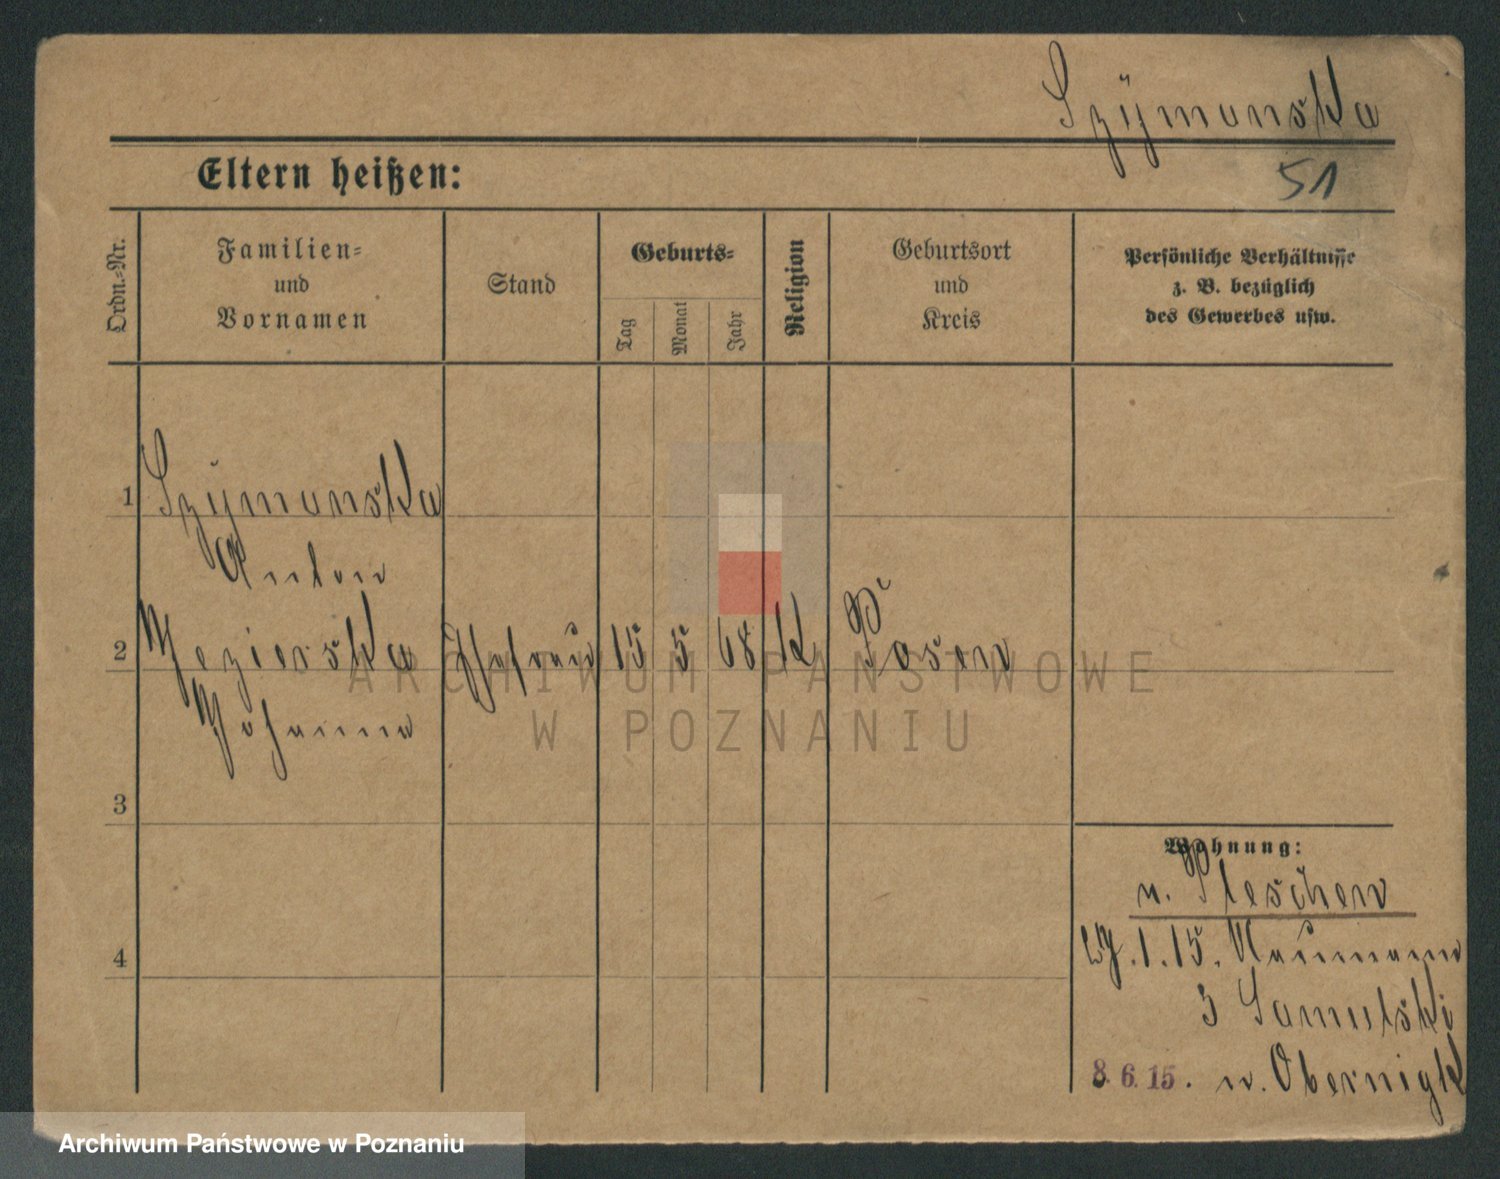 Szÿmanska
Eltern heißen:
51
Ordn.-Nr.
Familien-
und
Vornamen
Stand
Geburts-
Tag
Monat
Jahr
Religion
Geburtsort
und
Kreis
Persönliche Verhältnisse
z. B. bezüglich
des Gewerbes usw.
1
Szÿmanska
Anton
2
Mezierska
Ehefrau
15
5
68
K
Posen
Johanna
3
4
Wohnung:
n. Pleschen
1.15. Naumann
3 Samulski
8.6.15. n. Obernigk
ARCHIWUM PAŃSTWOWE
W POZNANIU
Archiwum Państwowe w Poznaniu